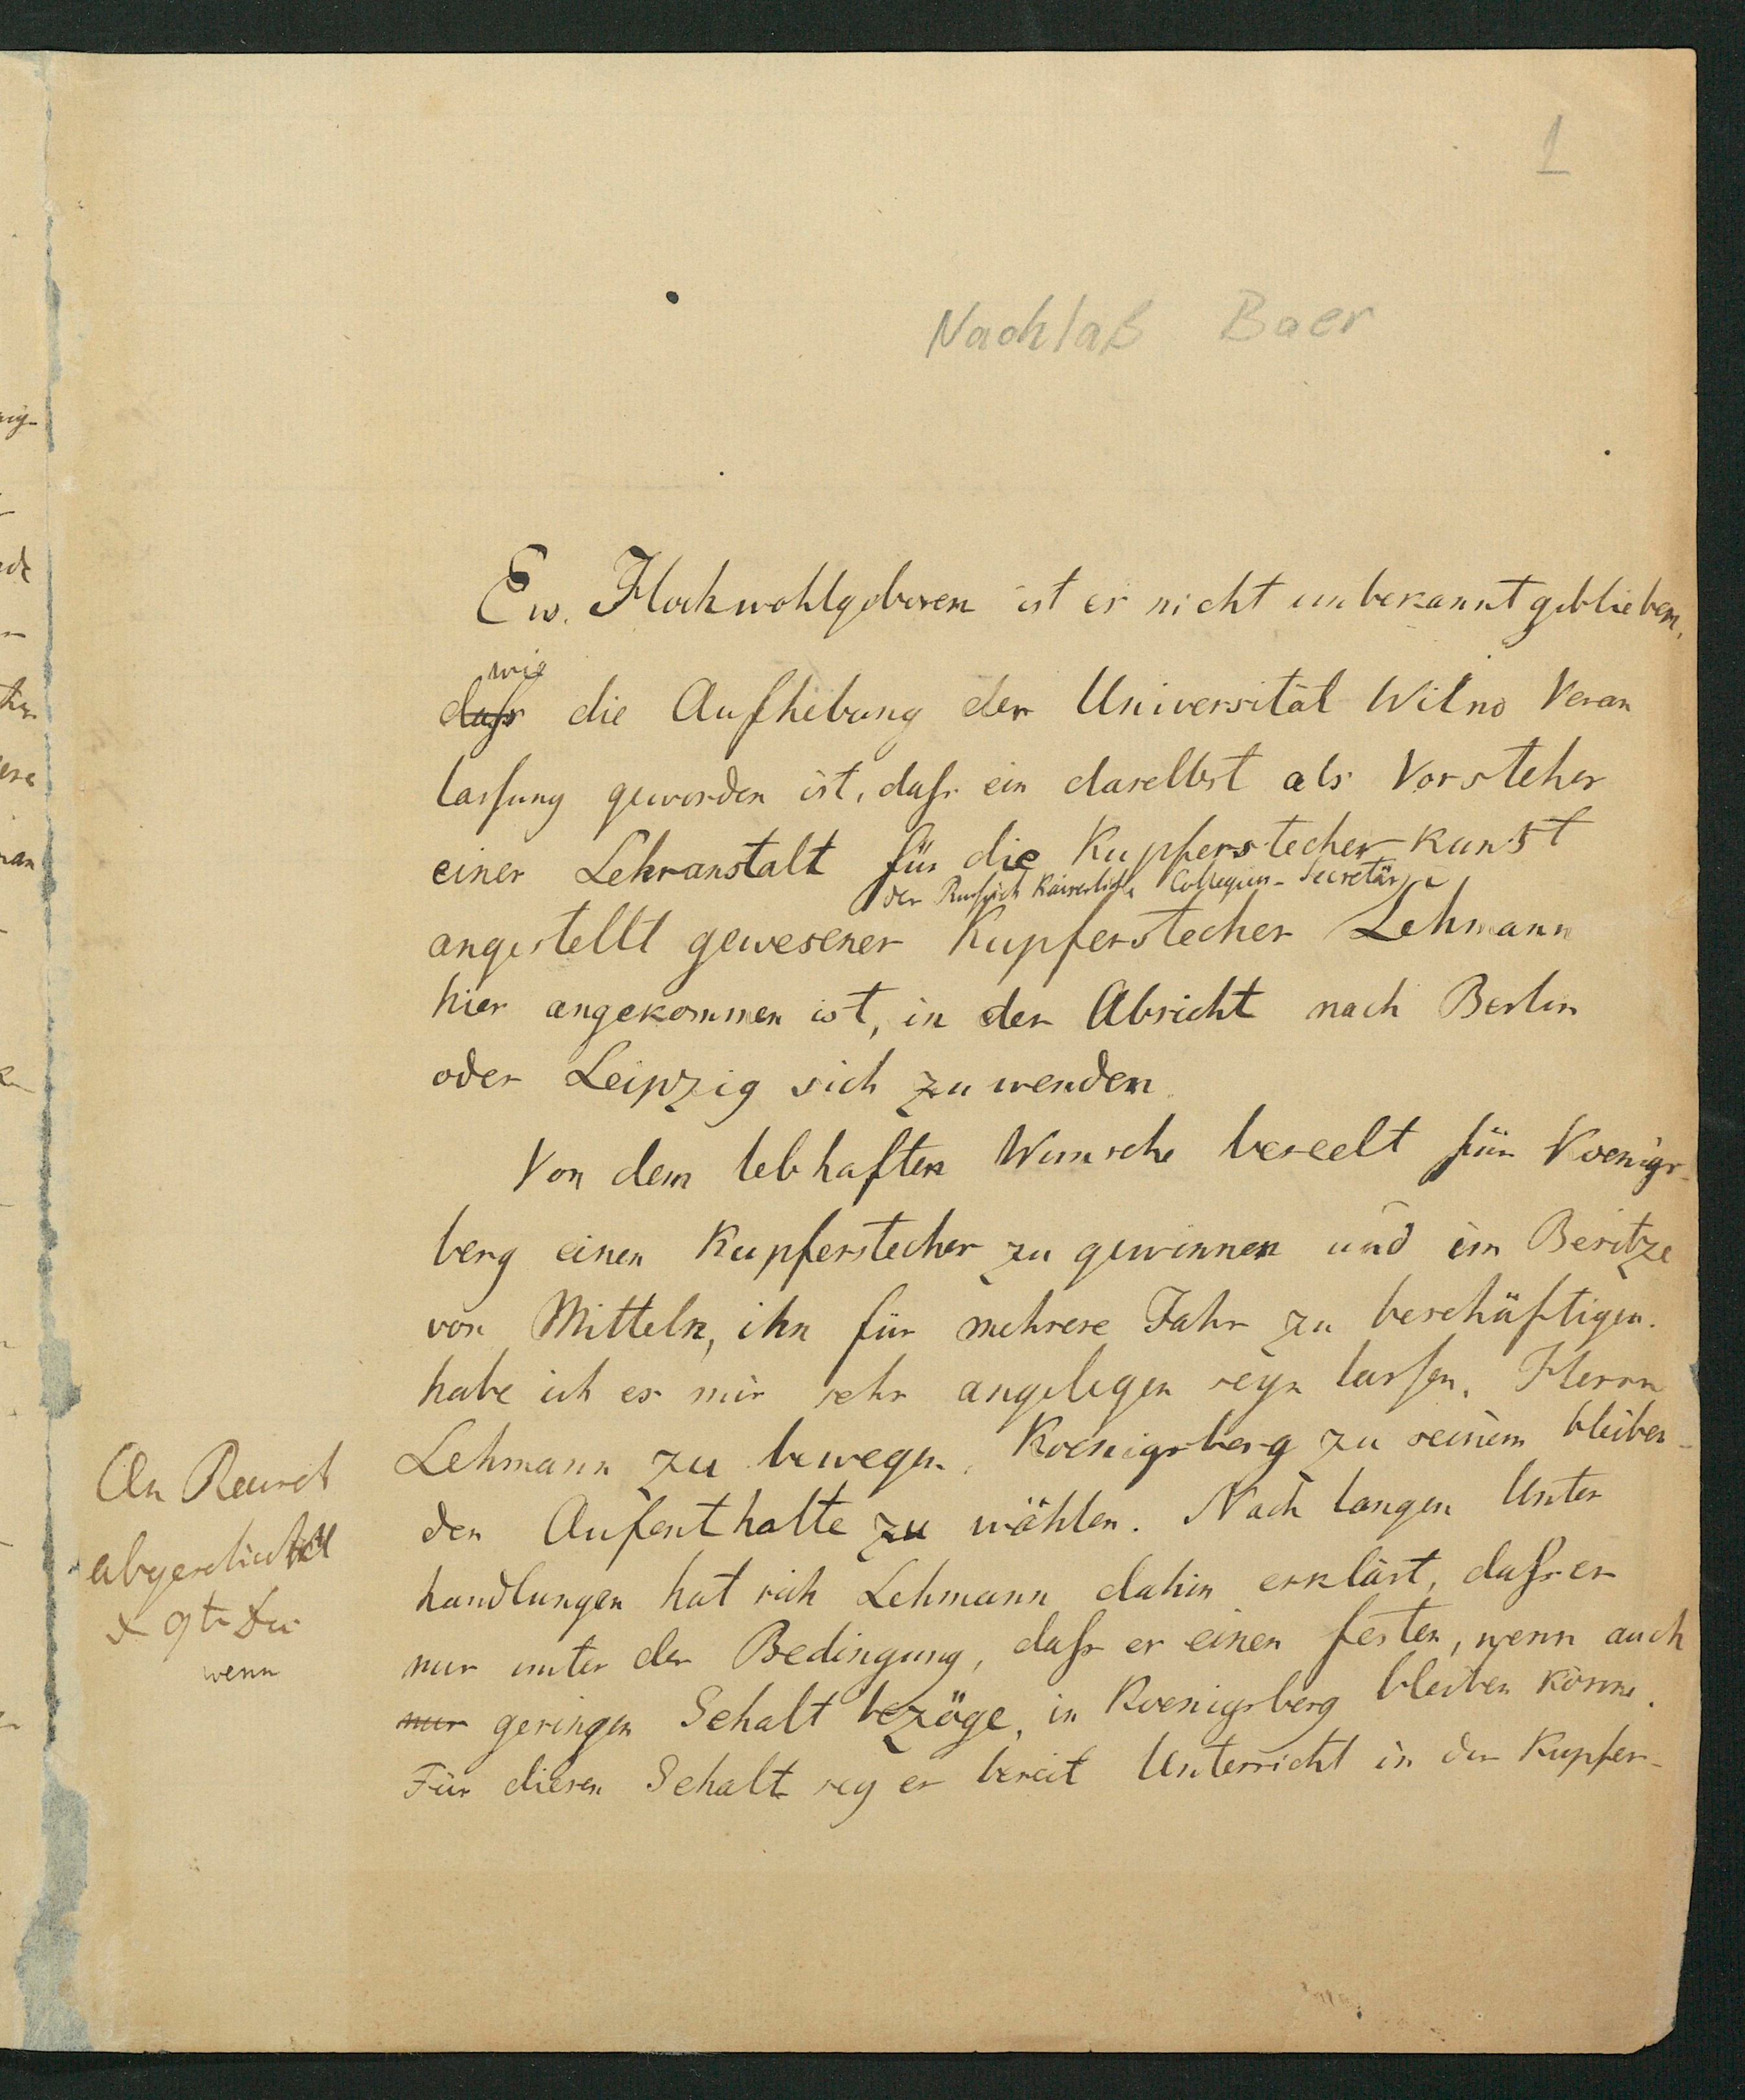 1
Nachlaß Baer
Ew. Hochwohlgeboren ist es nicht unbekannt geblieben,
wie
dass die Aufhebung der Universität Wilno Veran
lassung geworden ist, dass ein daselbst als Vorsteher
einer Lehranstalt für die Kupferstecher-Kunst
der Russisch Kaiserliche Collegien-Secretär
angestellt gewesener Kupferstecher Lehmann
hier angekommen ist, in der Absicht nach Berlin
oder Leipzig sich zu wenden.
Von dem lebhaften Wunsche beseelt für Koenigs-
berg einen Kupferstecher zu gewinnen und im Besitze
von Mitteln, ihn für mehrere Jahr zu beschäftigen.
habe ich es mir sehr angelegen seyn lassen, Herrn
Lehmann zu bewegen, Koenigsberg zu seinem bleiben-
den Aufenthalte zu wählen. Nach langen Unter
handlungen hat sich Lehmann dahin erklärt, dass er
nur unter der Bedingung, dass er einen festen, wenn auch
nur geringen Gehalt bezöge, in Koenigsberg bleiben könne.
Für diesen Gehalt sey er bereit Unterricht in der Kupfer-
An
wenn